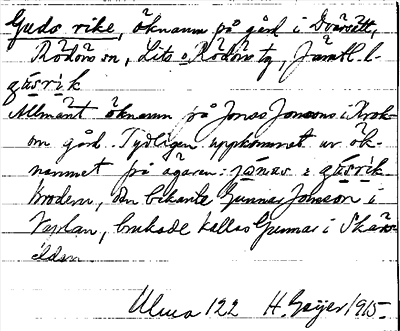 Guds rike, öknamn på gård i Dvärsätt,
Rödöns sn, Lits o Rödöns tg, Jämtl. l.
gu̅sri̅k
Allmänt öknamn på Jonas Jonsons i Krok-
om gård. Tydligen uppkommet ur ök-
namnet på ägaren: jo̅nas i gu̅sri̅k
Brodern, den bekante Gunnar Jonsson i
Vaplan, brukade kallas Gunnar i Skärs-
elden.
Ulma 122 H. Geijer 1915.